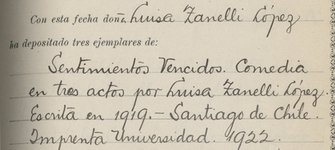 Con esta fecha doña Luisa Zanelli López
ha depositado tres ejemplares de:
Sentimientos Vencidos. Comedia
en tres actos por Luisa Zanelli López.
Escrita en 1919.- Santiago de Chile.
Imprenta Universidad. 1922.